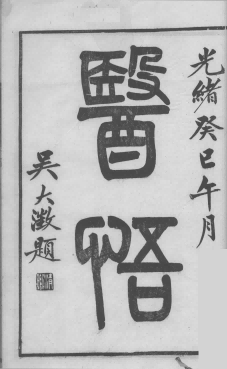 光緒癸巳午月
醫悟
吳大澂題